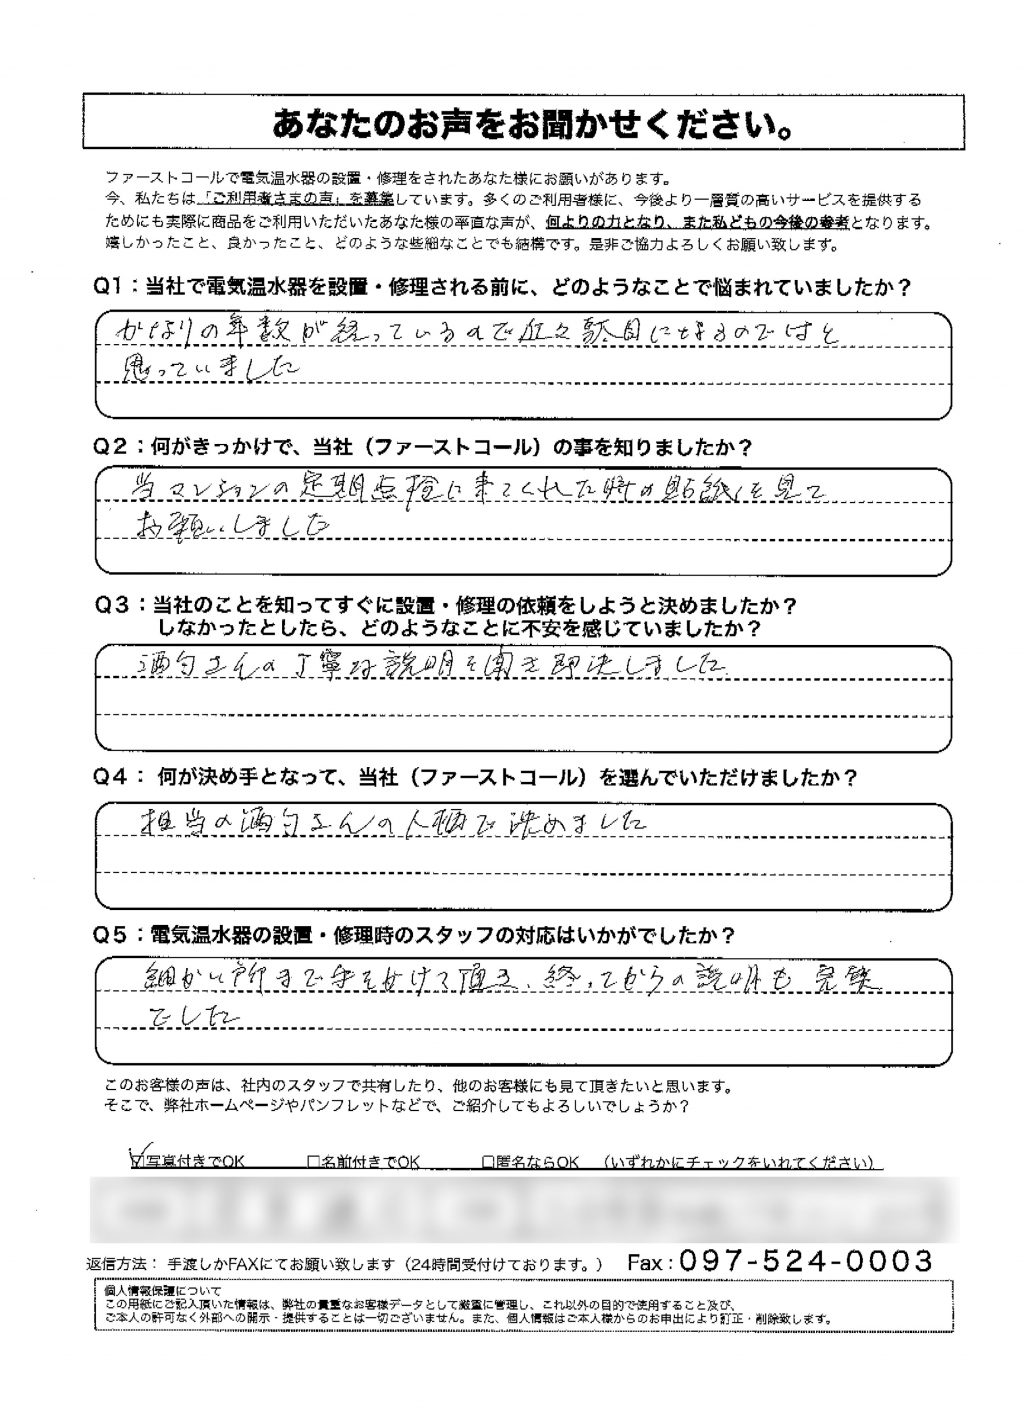 あなたのお声をお聞かせください。
ファーストコールで電気温水器の設置・修理をされたあなた様にお願いがあります。
今、私たちは「ご利用者さまの声」を募集しています。多くのご利用者様に、今後より一層質の高いサービスを提供する
ためにも実際に商品をご利用いただいたあなた様の率直な声が、何よりの力となり、また私どもの今後の参考となります。
嬉しかったこと、良かったこと、どのような些細なことでも結構です。是非ご協力よろしくお願い致します。
Q1：当社で電気温水器を設置・修理される前に、どのようなことで悩まれていましたか？
かなりの年数が経っているので近々駄目になるのではと
思っていました
Q2：何がきっかけで、当社（ファーストコール）の事を知りましたか？
当マンションの定期点検に来てくれた時の貼紙を見て
お願いしました
Q3：当社のことを知ってすぐに設置・修理の依頼をしようと決めましたか？
しなかったとしたら、どのようなことに不安を感じていましたか？
酒匂さんの丁寧な説明を聞き即決しました
Q4： 何が決め手となって、当社（ファーストコール）を選んでいただけましたか？
担当の酒匂さんの人柄で決めました
Q5：電気温水器の設置・修理時のスタッフの対応はいかがでしたか？
細かい所まで手を付けて頂き、終ってからの説明も完璧
でした
このお客様の声は、社内のスタッフで共有したり、他のお客様にも見て頂きたいと思います。
そこで、弊社ホームページやパンフレットなどで、ご紹介してもよろしいでしょうか？
☑写真付きでOK　□名前付きでOK　□匿名ならOK　（いずれかにチェックをいれてください）
返信方法： 手渡しかFAXにてお願い致します（24時間受付けております。） Fax：097-524-0003
個人情報保護について
この用紙にご記入頂いた情報は、弊社の貴重なお客様データとして厳重に管理し、これ以外の目的で使用すること及び、
ご本人の許可なく外部への開示・提供することは一切ございません。また、個人情報はご本人様からのお申出により訂正・削除致します。